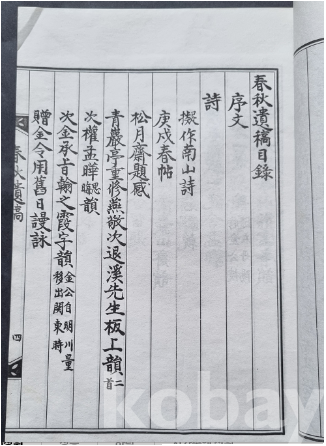 春秋遺稿目錄
序文
詩
擬作南山詩
庚戌春帖
松月齋題感
青巖亭重修燕敬次退溪先生板上韻二首
次權孟暭韻
次金承旨翰之霞字韻金公自明川量移出関東時
贈金令用舊日謾詠
春秋遺稿
四
kobay